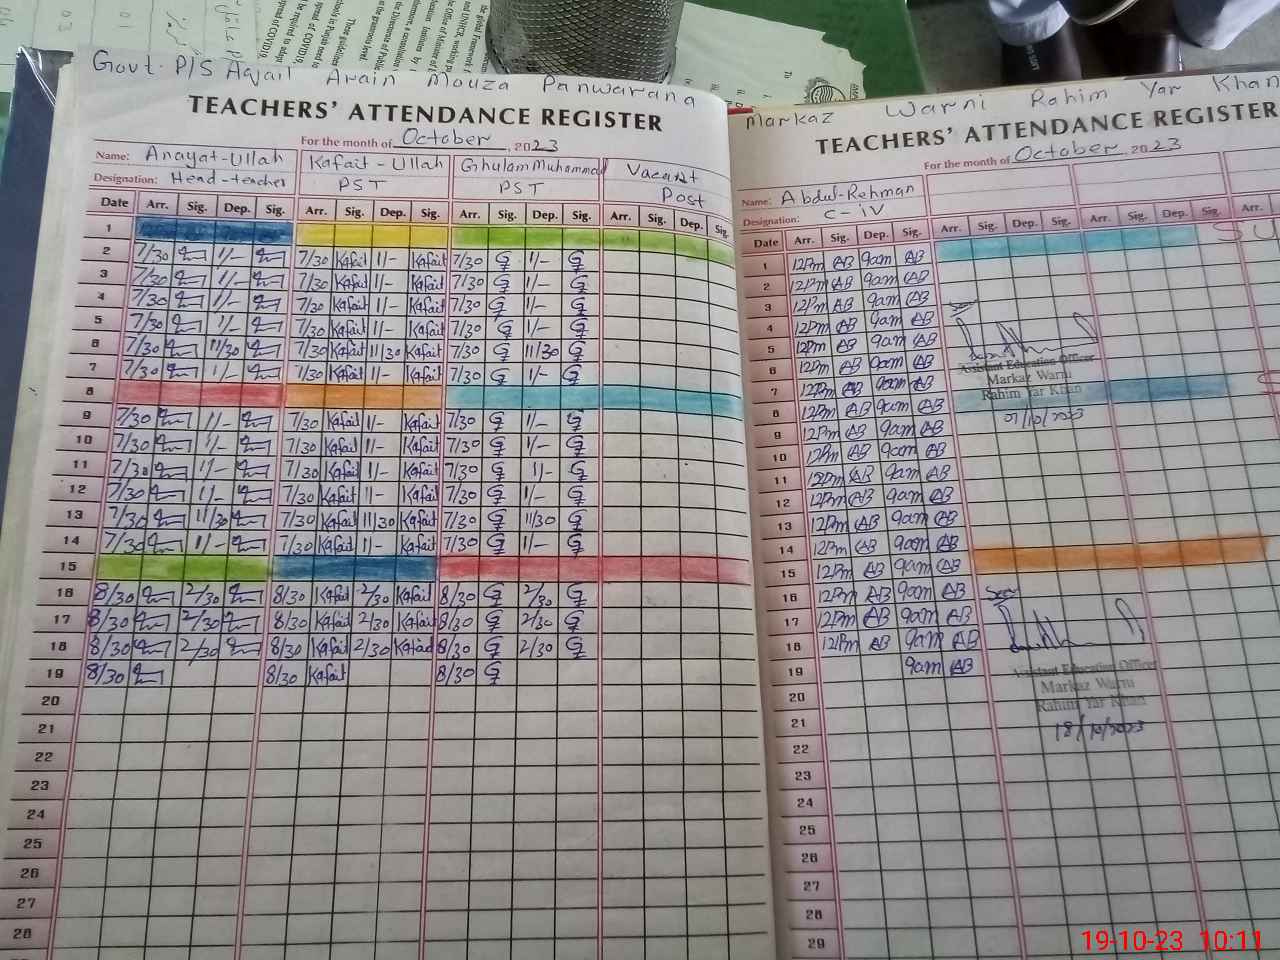 Govt. P/S Aqail Arain Mouza Panwarana
TEACHERS' ATTENDANCE REGISTER
For the month of October, 2023
Name: Anayat-Ullah Kafait-Ullah Ghulam Muhammad Vacant
Designation: Head-teacher PST PST Post
Date Arr. Sig. Dep. Sig. Arr. Sig. Dep. Sig. Arr. Sig. Dep. Sig. Arr. Sig. Dep. Sig.
1
2 7/30 1/- 7/30 Kafait 1/- Kafait 7/30 G 1/- G
3 7/30 1/- 7/30 Kafait 1/- Kafait 7/30 G 1/- G
4 7/30 1/- 7/30 Kafait 1/- Kafait 7/30 G 1/- G
5 7/30 1/- 7/30 Kafait 1/- Kafait 7/30 G 1/- G
6 7/30 11/30 7/30 Kafait 11/30 Kafait 7/30 G 11/30 G
7 7/30 1/- 7/30 Kafait 1/- Kafait 7/30 G 1/- G
8
9 7/30 1/- 7/30 Kafait 1/- Kafait 7/30 G 1/- G
10 7/30 1/- 7/30 Kafait 1/- Kafait 7/30 G 1/- G
11 7/30 1/- 7/30 Kafait 1/- Kafait 7/30 G 1/- G
12 7/30 1/- 7/30 Kafait 1/- Kafait 7/30 G 1/- G
13 7/30 11/30 7/30 Kafait 11/30 Kafait 7/30 G 11/30 G
14 7/30 1/- 7/30 Kafait 1/- Kafait 7/30 G 1/- G
15
16 8/30 2/30 8/30 Kafait 2/30 Kafait 8/30 G 2/30 G
17 8/30 2/30 8/30 Kafait 2/30 Kafait 8/30 G 2/30 G
18 8/30 2/30 8/30 Kafait 2/30 Kafait 8/30 G 2/30 G
19 8/30 8/30 Kafait 8/30 G
20
21
22
23
24
25
26
27
28
Markaz Warni Rahim Yar Khan
TEACHERS' ATTENDANCE REGISTER
For the month of October, 2023
Name: Abdul-Rehman
Designation: C-iv
Date Arr. Sig. Dep. Sig. Arr. Sig. Dep. Sig. Arr. Sig. Dep. Sig. Arr.
1 12Pm AB 9am AB
2 12Pm AB 9am AB
3 12Pm AB 9am AB
4 12Pm AB 9am AB
5 12Pm AB 9am AB
6 12Pm AB 9am AB
7 12Pm AB 9am AB
8 12Pm AB 9am AB
9 12Pm AB 9am AB
10 12Pm AB 9am AB
11 12Pm AB 9am AB
12 12Pm AB 9am AB
13 12Pm AB 9am AB
14 12Pm AB 9am AB
15 12Pm AB 9am AB
16 12Pm AB 9am AB
17 12Pm AB 9am AB
18 12Pm AB 9am AB
19 9am AB
20
21
22
23
24
25
26
27
28
29
Assistant Education Officer
Markaz Warni
Rahim Yar Khan
07/10/2023
Seen
Assistant Education Officer
Markaz Warni
Rahim Yar Khan
18/10/2023
19-10-23 10:11